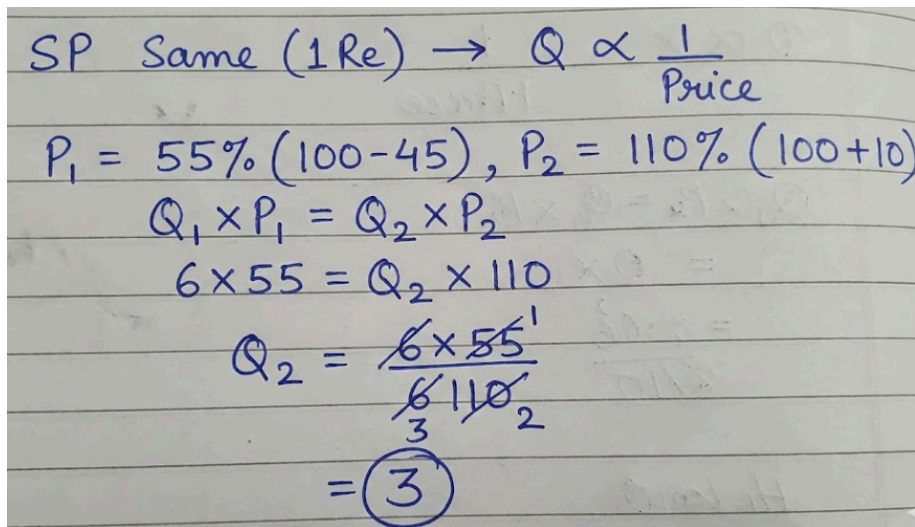 SP Same (1Re) → Q ∝ 1/Price
P₁ = 55% (100-45), P₂ = 110% (100+10)
Q₁ × P₁ = Q₂ × P₂
6 × 55 = Q₂ × 110
Q₂ = 6 × 55 1
6 110 2
3
= 3